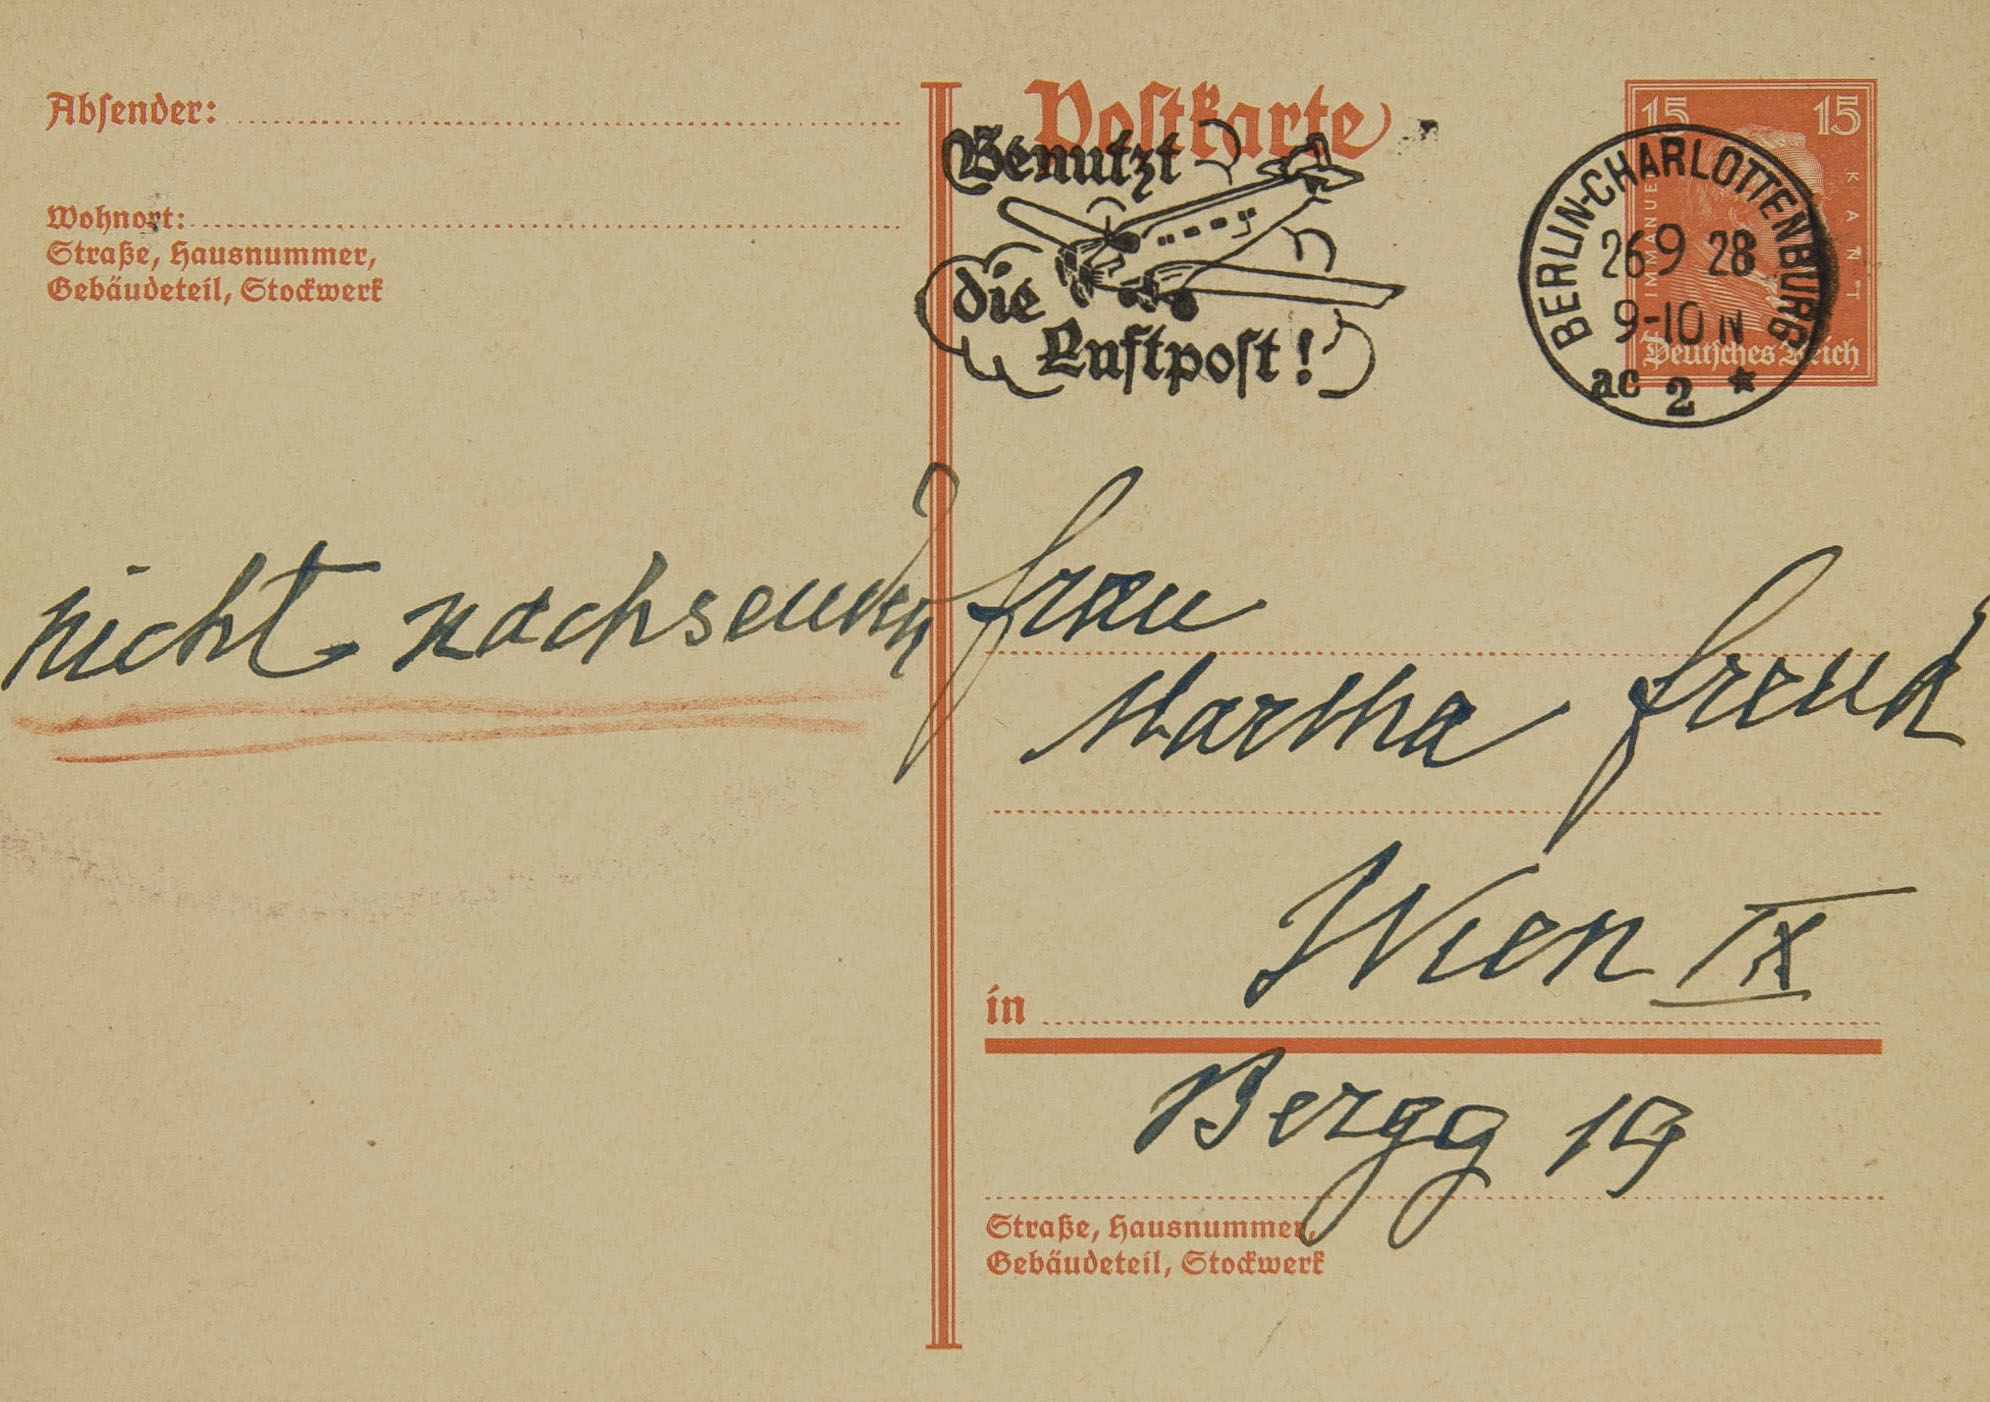 Absender:
Wohnort:
Straße, Hausnummer,
Gebäudeteil, Stockwerk
nicht nachsenden
Postkarte
Benutzt
die
Luftpost!
15 15
IMMANUEL KANT
Deutsches Reich
BERLIN-CHARLOTTENBURG
26 9 28
9-10 N
ac 2 *
Frau
Martha Freud
in Wien IX
Bergg 19
Straße, Hausnummer,
Gebäudeteil, Stockwerk